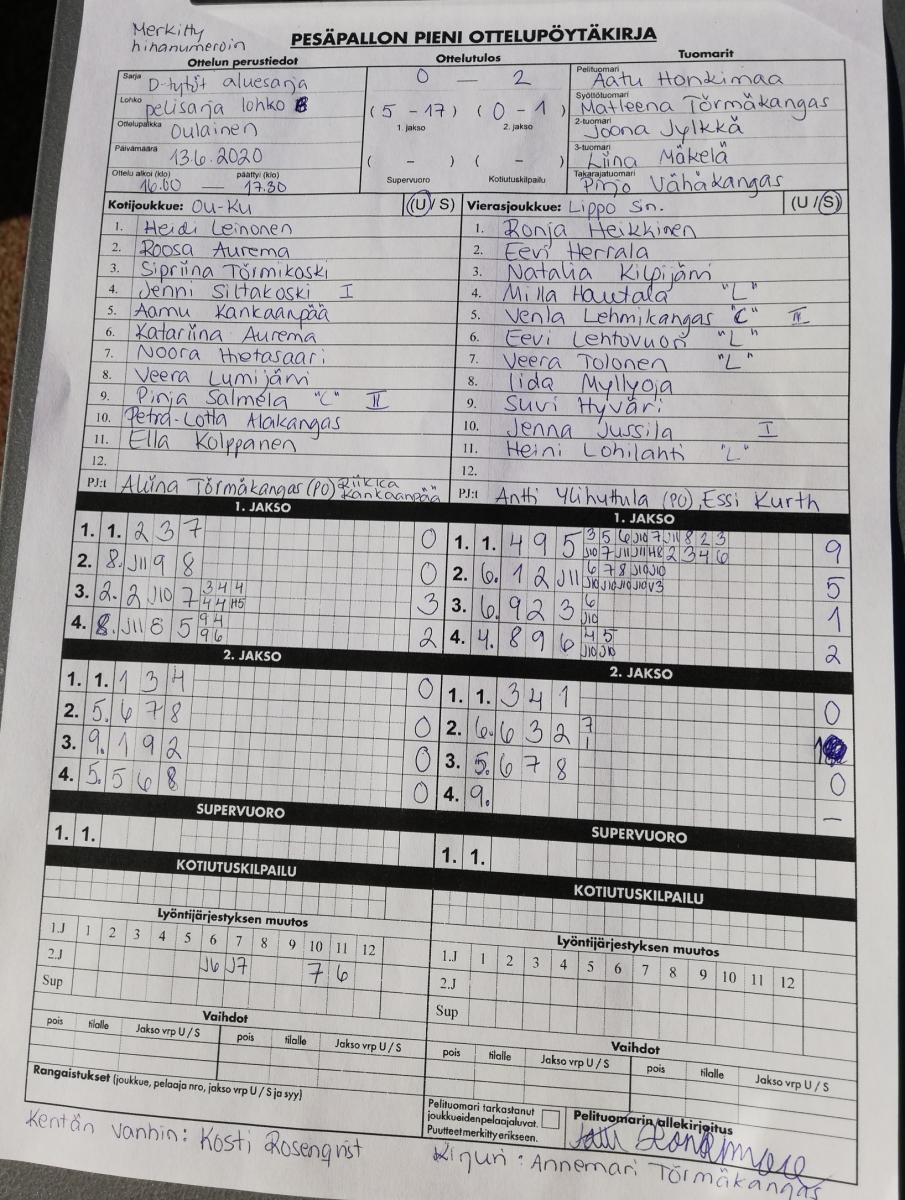 Merkitty
hihanumeroin
PESÄPALLON PIENI OTTELUPÖYTÄKIRJA
Ottelun perustiedot
Ottelutulos
Tuomarit
Sarja D-tytöt aluesarja
Lohko pelisarja lohko B
Ottelupaikka Oulainen
Päivämäärä 13.6.2020
Ottelu alkoi (klo) päättyi (klo)
16.00 — 17.30
0 — 2
(5 - 17) (0 - 1)
1. jakso 2. jakso
( - ) ( - )
Supervuoro Kotiutuskilpailu
Pelituomari Aatu Honkimaa
Syöttötuomari Matleena Törmäkangas
2-tuomari Joona Jylkkä
3-tuomari Liina Mäkelä
Takarajatuomari Pinjo Vähäkangas
Kotijoukkue: Ou-Ku (U / S)
1. Heidi Leinonen
2. Roosa Aurema
3. Sipriina Törmikoski
4. Jenni Siltakoski I
5. Aamu Kankaanpää
6. Katariina Aurema
7. Noora Hietasaari
8. Veera Lumijärvi
9. Pinja Salmela "C" II
10. Petra-Lotta Alakangas
11. Ella Kolppanen
12.
PJ:t Aliina Törmäkangas (PO) Riikka Kankaanpää
Vierasjoukkue: Lippo Sin. (U / S)
1. Ronja Heikkinen
2. Eevi Herrala
3. Natalia Kilpijärvi
4. Milla Hautala "L"
5. Venla Lehmikangas "C" IV
6. Eevi Lehtovuori "L"
7. Veera Tolonen "L"
8. Iida Myllyoja
9. Suvi Hyväri
10. Jenna Jussila I
11. Heini Lohilahti "L"
12.
PJ:t Antti Ylihuttula (PO), Essi Kurth
1. JAKSO
1. 1. 2 3 7 0
2. 8. J11 9 8 0
3. 2. 2 J10 7 3 4 4 3
4 4 H5
4. 8. J11 8 5 9 4 2
9 6
2. JAKSO
1. 1. 1 3 4 0
2. 5. 6 7 8 0
3. 9. 1 9 2 0
4. 5. 5 6 8 0
SUPERVUORO
1. 1.
KOTIUTUSKILPAILU
1. JAKSO
1. 1. 4 9 5 3 5 6 J10 7 J11 8 2 3 9
J10 7 J11 J11 H8 2 3 4 6
2. 6. 1 2 J11 6 7 8 J10 J10 5
J10 J10 J10 J10 V3
3. 6. 9 2 3 6 1
J10
4. 4. 8 9 6 4 5 2
J10 J10
2. JAKSO
1. 1. 3 4 1 0
2. 6. 6 3 2 7 1
1
3. 5. 6 7 8 0
4. 9. —
SUPERVUORO
1. 1.
KOTIUTUSKILPAILU
Lyöntijärjestyksen muutos
1.J 1 2 3 4 5 6 7 8 9 10 11 12
2.J J6 J7 7 6
Sup
Vaihdot
pois tilalle Jakso vrp U / S pois tilalle Jakso vrp U / S
Rangaistukset (joukkue, pelaaja nro, jakso vrp U / S ja syy)
Lyöntijärjestyksen muutos
1.J 1 2 3 4 5 6 7 8 9 10 11 12
2.J
Sup
Vaihdot
pois tilalle Jakso vrp U / S pois tilalle Jakso vrp U / S
Pelituomari tarkastanut
joukkueidenpelaajaluvat.
Puutteet merkitty erikseen.
Pelituomarin allekirjoitus
Kentän vanhin: Kosti Rosenqvist
Kirjuri: Annemari Törmäkangas